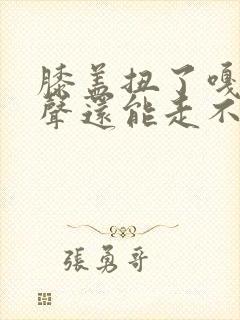 膝盖扭了嘎
聲還能走不
張勇哥